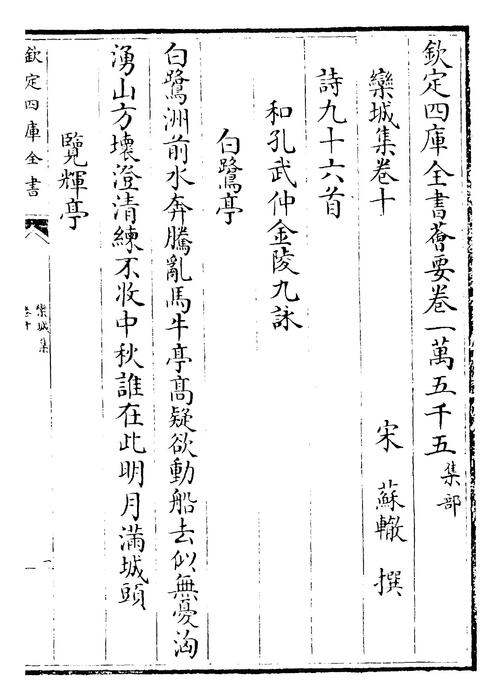 欽定四庫全書薈要卷一萬五千五集部
欒城集卷十
宋 蘇轍 撰
詩九十六首
和孔武仲金陵九詠
白鷺亭
白鷺洲前水奔騰亂馬牛亭髙疑欲動船去似無憂洶
湧山方壊澄清練不收中秋誰在此明月滿城頭
覽輝亭
欽定四庫全書
欒城集
卷十
一